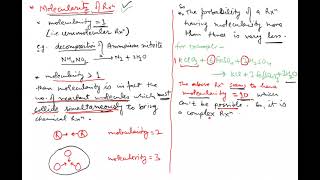 * Molecularity of Rxⁿ ✓
* molecularity = 1
(i.e unimolecular Rxⁿ)
E.g. decomposition of Ammonium nitrite
NH₄NO₂ → N₂ + 2H₂O
* molecularity > 1
then molecularity is in fact the
no. of reactant molecules which must
collide simultaneously to bring
chemical Rxⁿ.
molecularity = 2
molecularity = 3
So
The probability of a Rxⁿ
having molecularity more
than three is very less.
for example -
KClO₃ + FeSO₄ + H₂SO₄
→ KCl +
The above Rxⁿ seems to have
molecularity = 10 which
can't be possible. So, it is
a complex Rxⁿ.